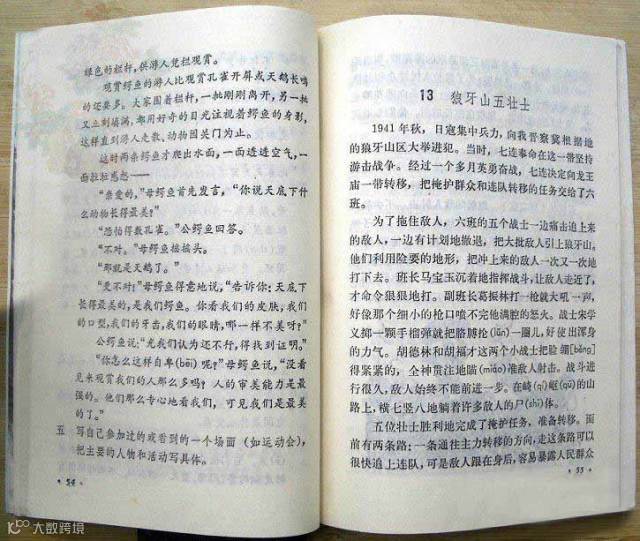 绿色的栏杆，供游人凭栏观赏。
观赏鳄鱼的游人比观赏孔雀开屏或天鹅长鸣
的还要多。大家围着栏杆，一批刚刚离开，另一批
又立刻填满，都用好奇的目光注视着鳄鱼的身影，
这样直到游人走散、动物园关门为止。
这时两条鳄鱼才爬出水面，一面透透空气，一
面拉拉感想——
“亲爱的，”母鳄鱼首先发言，“你说天底下什
么动物长得最美？”
“恐怕得数孔雀。”公鳄鱼回答。
“不对。”母鳄鱼摇摇头。
“那就是天鹅了。”
“更不对！”母鳄鱼得意地说，“告诉你：天底下
长得最美的，是我们鳄鱼。你看我们的皮肤，我们
的口型，我们的牙齿，我们的眼睛，哪一样不美呀？”
公鳄鱼说：“光我们认为还不行，得找到证明。”
“你怎么这样自卑(bēi)呢？”母鳄鱼说，“没看
见来观赏我们的人那么多吗？人的审美能力是最
强的。他们那么专心地看我们，可见我们是最美
的了。”
五 写自己参加过的或看到的一个场面（如运动会），
把主要的人物和活动写具体。
·54·
13 狼牙山五壮士
1941年秋，日寇集中兵力，向我晋察冀根据地
的狼牙山区大举进犯。当时，七连奉命在这一带坚持
游击战争。经过一个多月英勇奋战，七连决定向龙王
庙一带转移，把掩护群众和连队转移的任务交给了六
班。
为了拖住敌人，六班的五个战士一边痛击追上来
的敌人，一边有计划地撤退，把大批敌人引上狼牙山。
他们利用险要的地形，把冲上来的敌人一次又一次地
打下去。班长马宝玉沉着地指挥战斗，让敌人走近了，
才命令狠狠地打。副班长葛振林打一枪就大吼一声，
好像那个细小的枪口喷不完他满腔的怒火。战士宋学
义掷一颗手榴弹就把胳膊抡(lūn)一圈儿，好使出浑身
的力气。胡德林和胡福才这两个小战士把脸绷[běng]
得紧紧的，全神贯注地瞄(miáo)准敌人射击。战斗进
行很久，敌人始终不能前进一步。在崎(qí)岖(qū)的山
路上，横七竖八地躺着许多敌人的尸(shī)体。
五位壮士胜利地完成了掩护任务，准备转移。面
前有两条路：一条通往主力转移的方向，走这条路可以
很快追上连队，可是敌人跟在身后，容易暴露人民群众
·55·
大数跨境